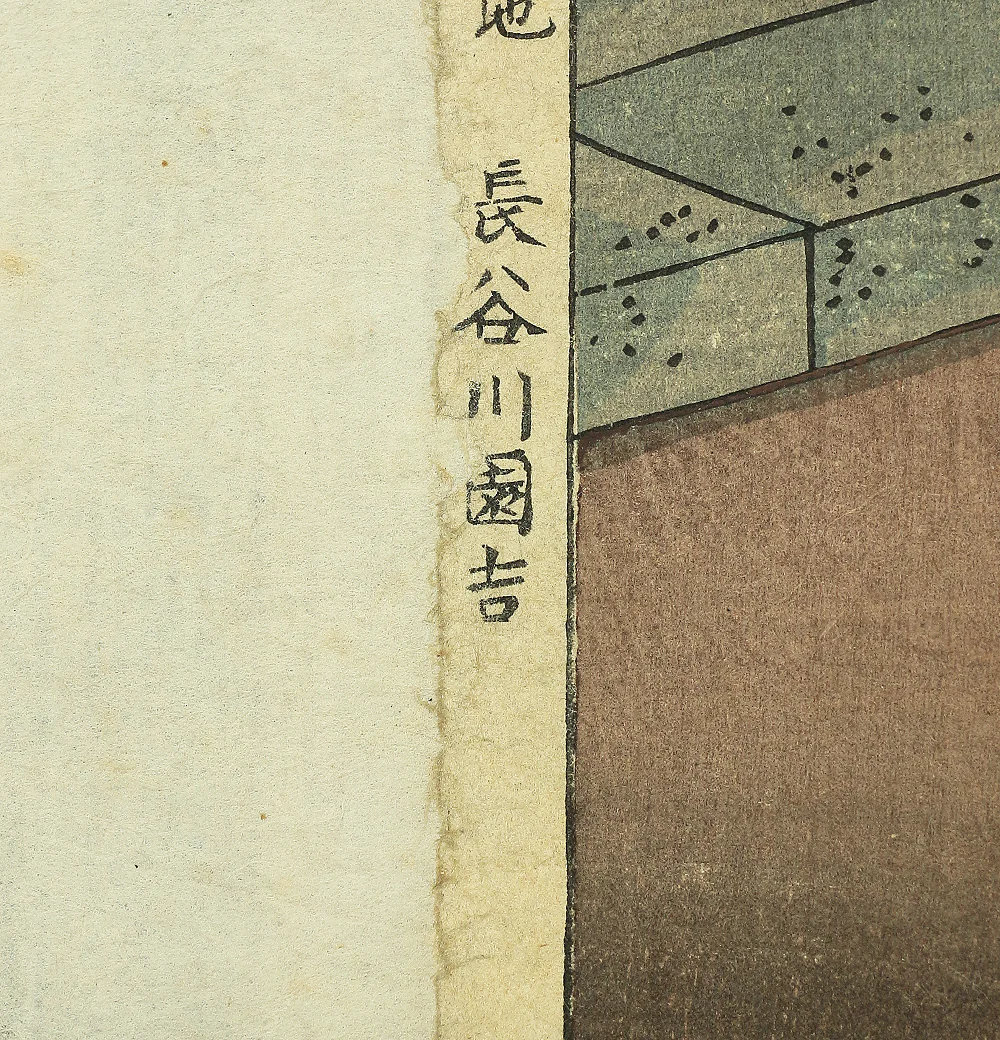 地 長谷川園吉